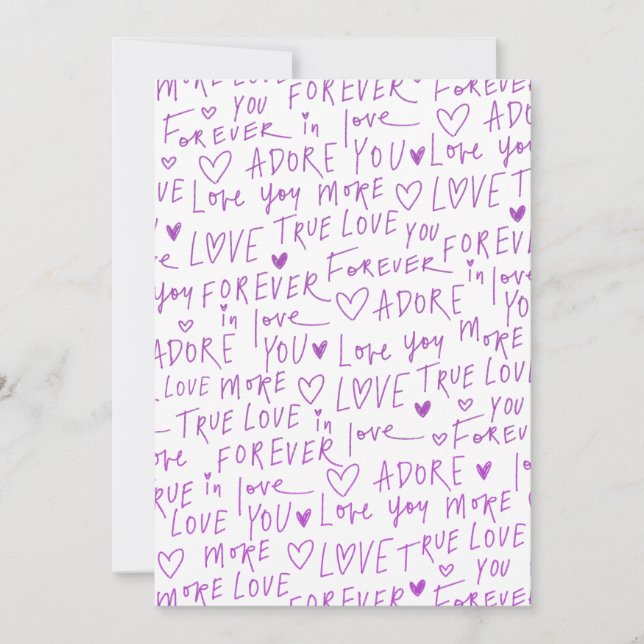 MORE LOVE FOREVER
YOU FOREVER
FOREVER in love ADO
ADORE YOU Love you
VE Love you MORE LOVE T
LOVE TRUE LOVE YOU
FOREVER FOREVER
you FOREVER ADORE in love
in love YOU
ADORE YOU Love you MORE
LOVE MORE LOVE TRUE LOVE
TRUE LOVE in YOU
FOREVER love FOREVER
RUE in love ADORE
LOVE YOU Love you MORE
MORE LOVE TRUE LOVE
YOU
MORE LOVE FOREVER FOREVER